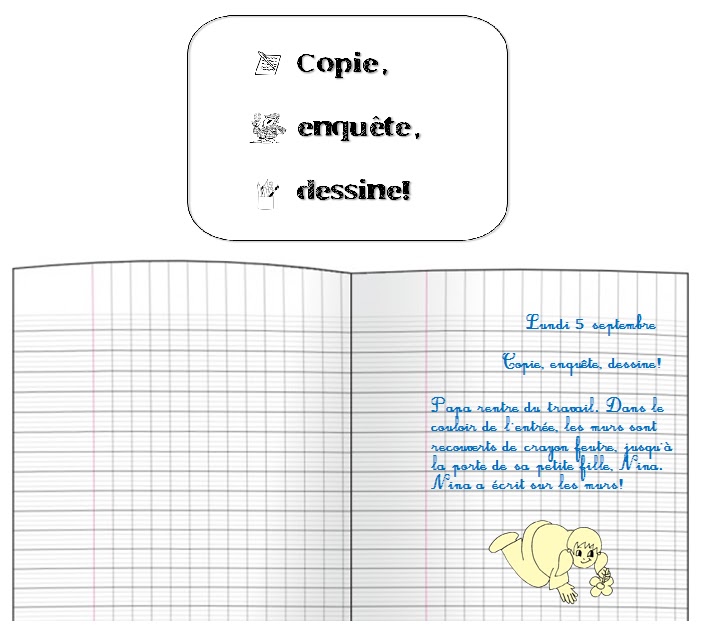 Copie,
enquête,
dessine!
Lundi 5 septembre
Copie, enquête, dessine!
Papa rentre du travail. Dans le
couloir de l'entrée, les murs sont
recouverts de crayon feutre, jusqu'à
la porte de sa petite fille, Nina.
Nina a écrit sur les murs!